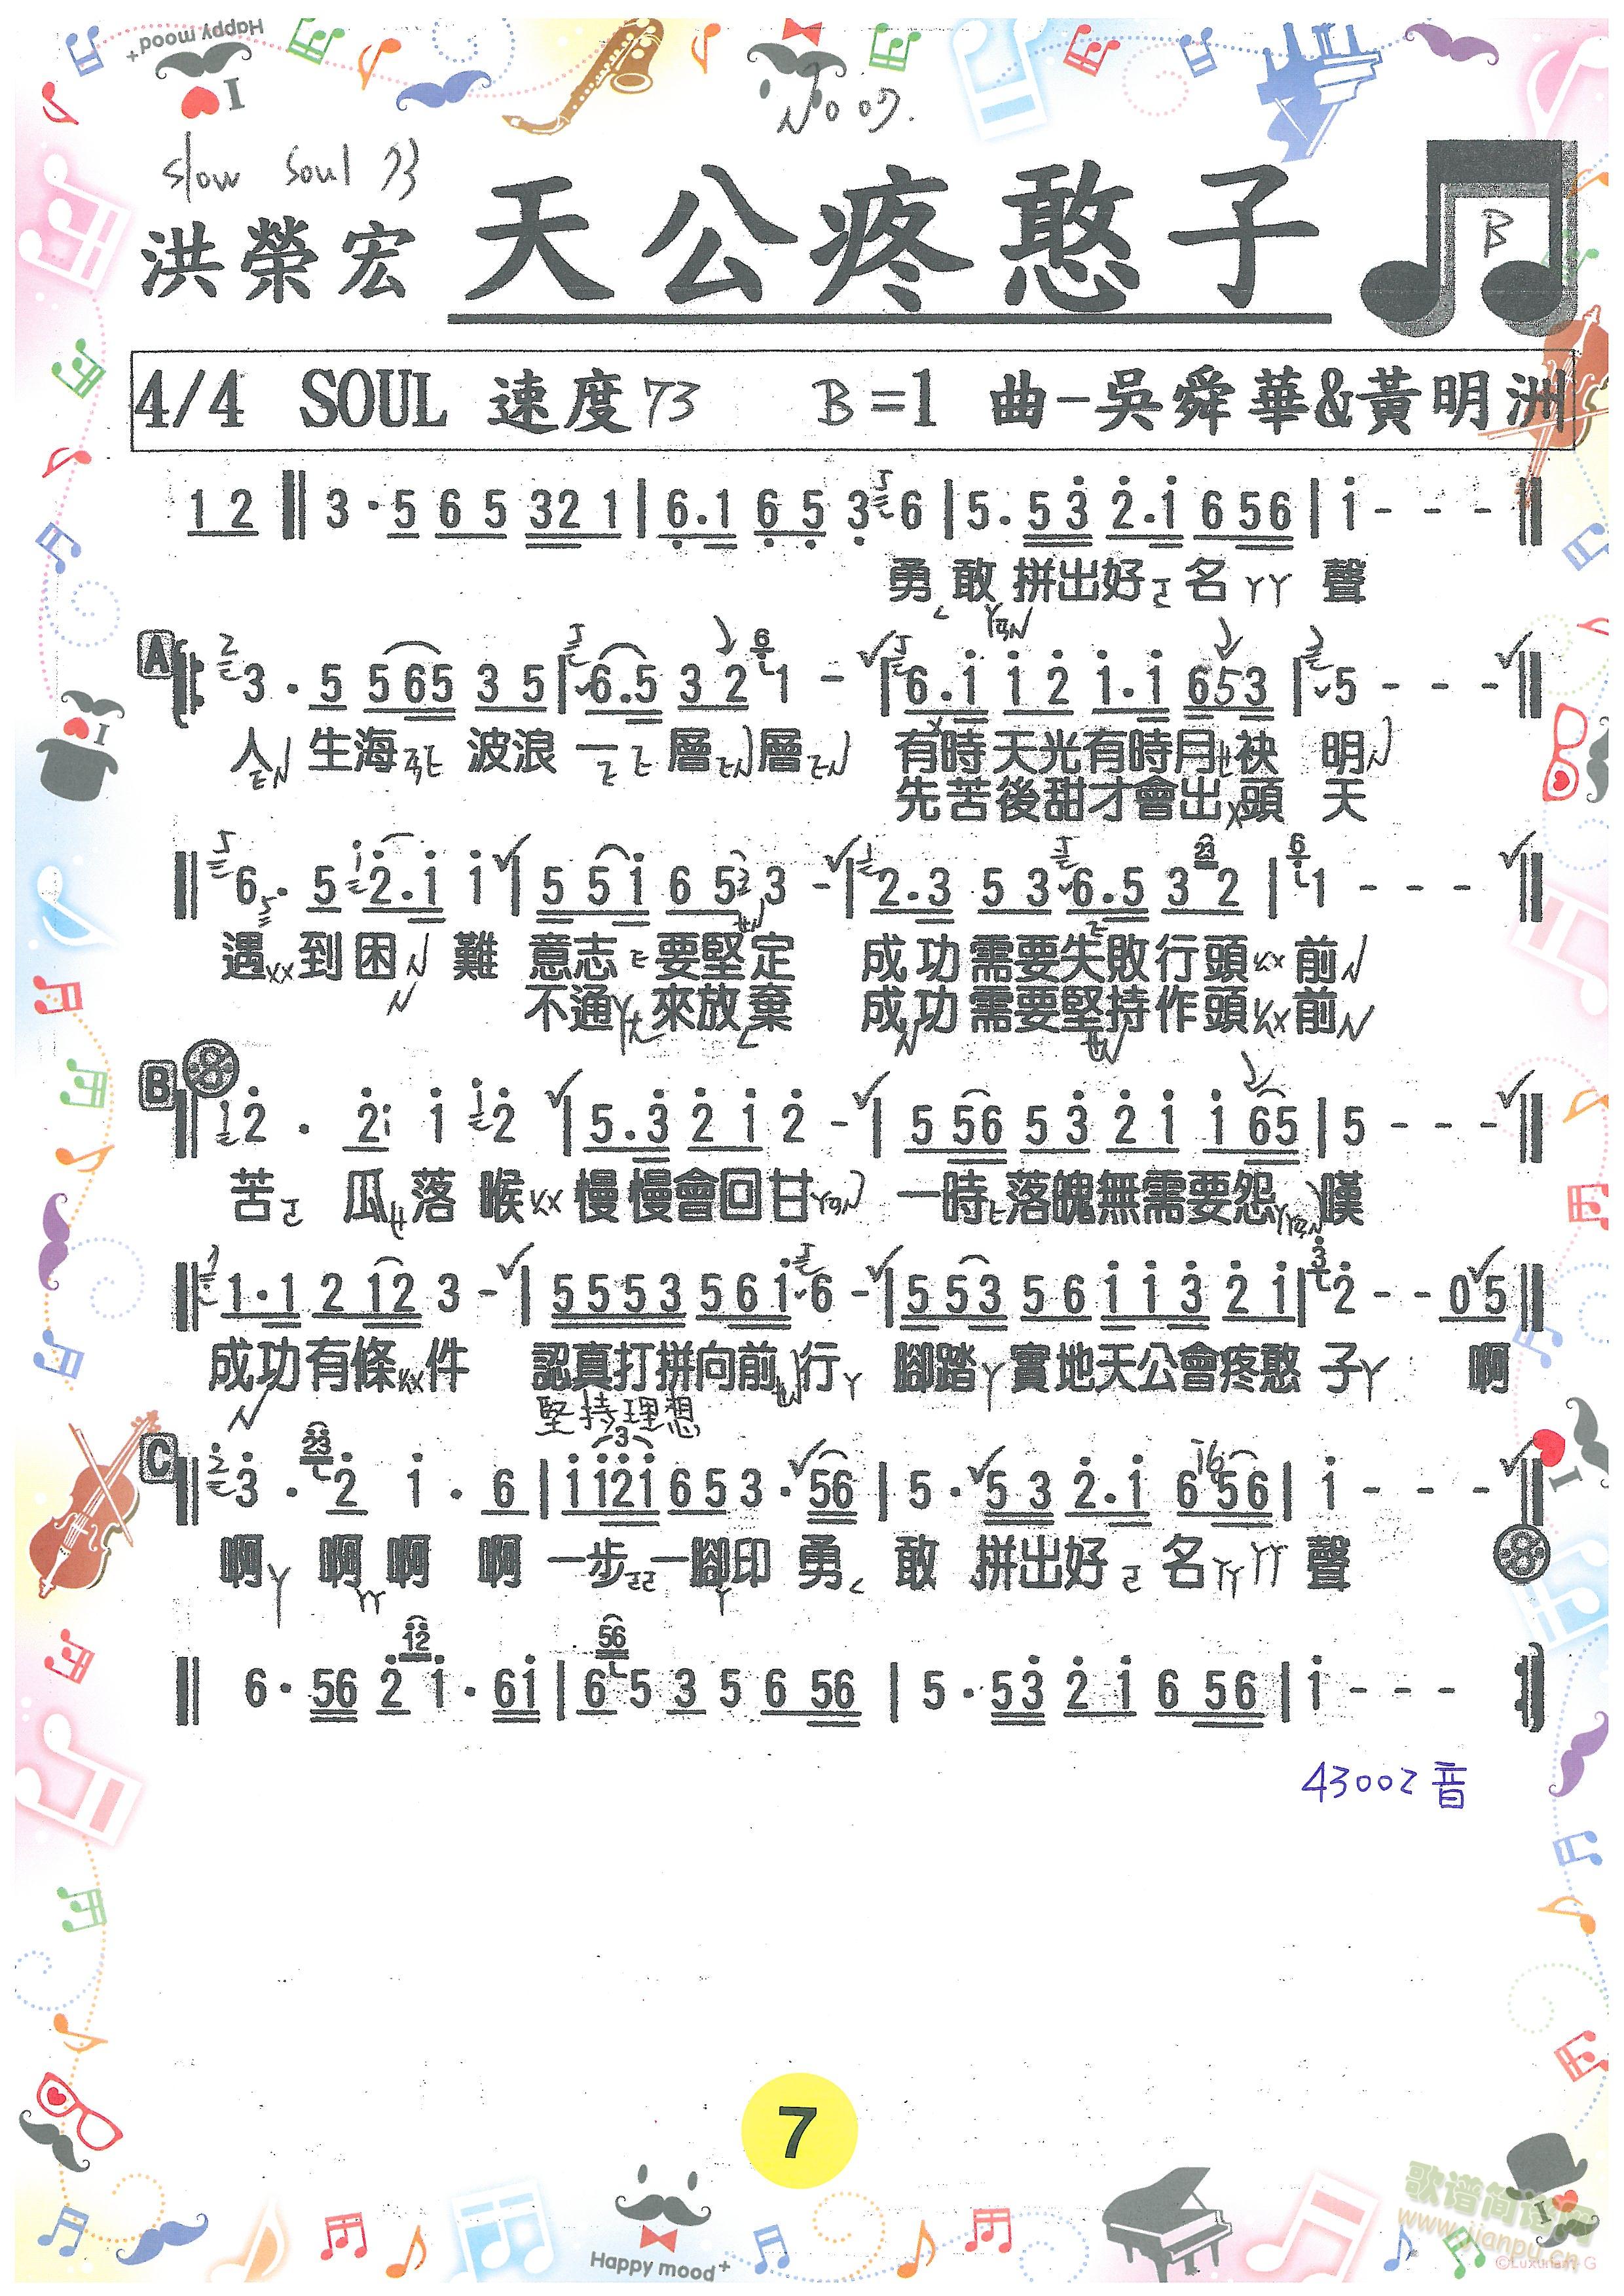 Happy mood+
I
No 07.
slow Soul 73
洪榮宏 天公疼憨子
B
4/4 SOUL 速度73 B=1 曲-吳舜華&黃明洲
1 2 ‖ 3 · 5 6 5 32 1 | 6̣.1 6̣ 5̣ 3̣ 6 | 5. 5 3̇ 2̇.1̇ 6 56 | 1̇ - - - ‖
勇敢拼出好名聲
A
3 . 5 565 3 5 | 6.5 3 2 1 - | 6.1̇ 1̇ 2̇ 1̇.1̇ 653 | 5 - - - ‖
人生海波浪一層層 有時天光有時月袂明
先苦後甜才會出頭天
‖ 6. 5 2̇.1̇ 1̇ | 5 5 1̇ 6 5 3 - | 2.3 5 3 6.5 3 2 | 1 - - - ‖
遇到困難意志要堅定 成功需要失敗行頭前
不通來放棄 成功需要堅持作頭前
B
‖ 2̇ . 2̇1̇ 1̇ 2̇ | 5.3̇ 2̇ 1̇ 2̇ - | 5 56 5 3̇ 2̇ 1̇ 1̇ 65 | 5 - - - ‖
苦瓜落喉慢慢會回甘 一時落魄無需要怨嘆
‖ 1.1 2 12 3 - | 5553 5 6 1̇ 6 - | 5 53 5 6 1̇ 1̇ 3̇ 2̇ 1̇ | 2̇ - - 0 5 ‖
成功有條件 認真打拼向前行 腳踏實地天公會疼憨子 啊
堅持理想
C
‖ 3̇ . 2̇ 1̇ . 6 | 1̇1̇2̇1̇ 6 5 3 . 56 | 5 . 5 3 2̇.1̇ 6 56 | 1̇ - - - ‖
啊 啊啊 啊 一步一腳印 勇敢 拼出好名聲
‖ 6 · 56 2̇ 1̇ . 61̇ | 6 5 3 5 6 56 | 5 . 53̇ 2̇ 1̇ 6 56 | 1̇ - - - ‖
43002音
7
Happy mood+
歌谱简谱网
www.jianpu.cn